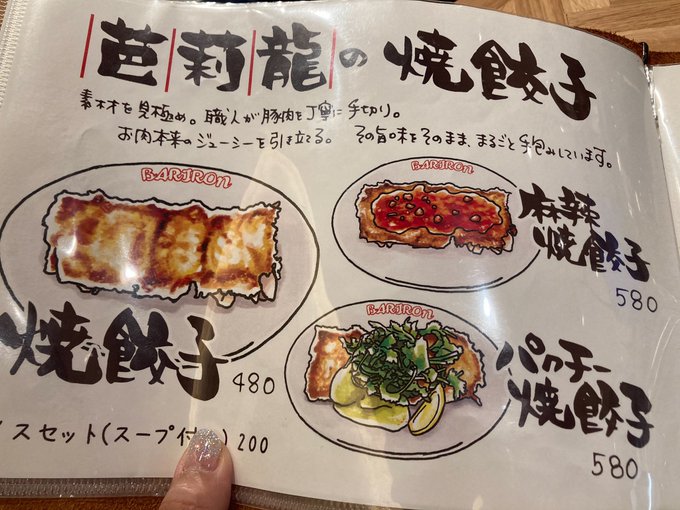 芭莉龍の焼餃子
素材を見極め。職人が豚肉を丁寧に手切り。
お肉本来のジューシーを引き立てる。その旨味をそのまま、まるごと手包みしています。
BARIROn
焼餃子
480
BARIROn
麻辣
焼餃子
580
BARIROn
パクチー
焼餃子
580
イスセット(スープ付)200